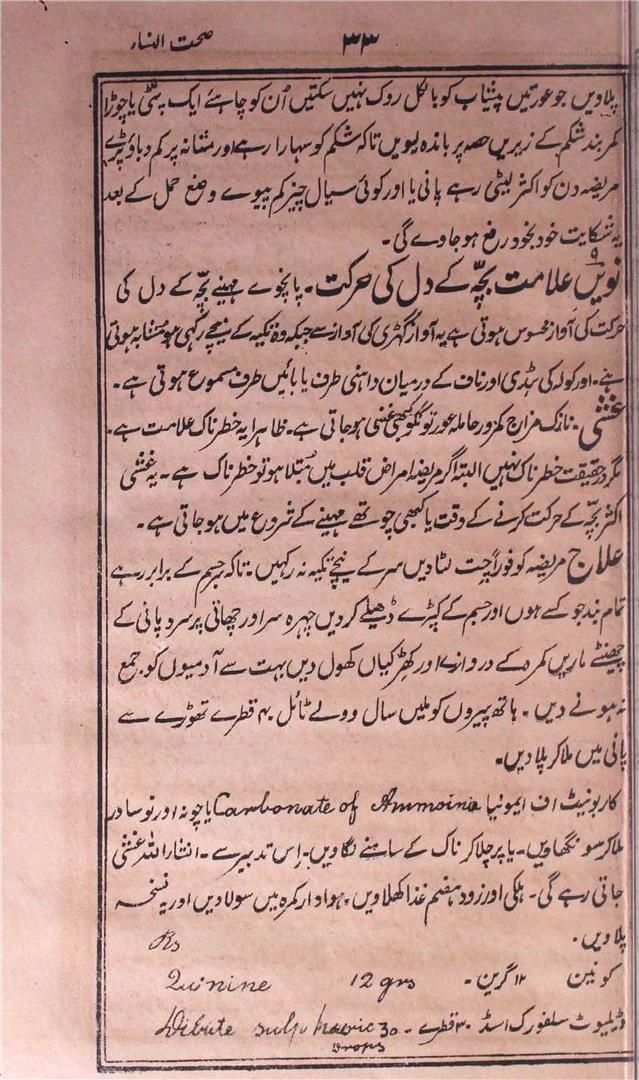 ۳۳ صحت النساء
پلاویں جو عورتیں پیشاب کو بالکل روک نہیں سکتیں اُن کو چاہئے ایک پٹی یا چوڑا
کمر بند شکم کے زیریں حصہ پر باندہ لیویں تاکہ شکم کو سہارا رہے اور مثانہ پر کم دباؤ پڑے
مریضہ دن کو اکثر لیٹی رہے پانی یا اور کوئی سیال چیز کم پیوے وضع حمل کے بعد
یہ شکایت خود بخود رفع ہو جاوے گی۔
۹
نویں علامت بچّہ کے دل کی حرکت۔ پانچوے مہینے بچّہ کے دل کی
حرکت کی آواز محسوس ہوتی ہے یہ آواز گھڑی کی آواز سے جبکہ وہ تکیہ کے نیچے رکہی ہو مشابہ ہوتی
ہے۔ اور کولہ کی ہڈی اور ناف کے درمیان داہنی طرف یا بائیں طرف مسموع ہوتی ہے۔
غشی۔ نازک مزاج کمزور حاملہ عورتونکو کبھی غشی ہو جاتی ہے۔ ظاہرا یہ خطرناک علامت ہے۔
مگر درحقیقت خطرناک نہیں البتہ اگر مریضہ امراض قلب میں مبتلا ہو تو خطرناک ہے۔ یہ غشی
اکثر بچّہ کے حرکت کرنے کے وقت یا کبھی چوتھے مہینے کے شروع میں ہو جاتی ہے۔
علاج مریضہ کو فوراً چت لٹا دیں سر کے نیچے تکیہ نہ رکہیں۔ تاکہ جسم کے برابر رہے
تمام بند جو کسے ہوں اور جسم کے کپڑے ڈھیلے کردیں چہرہ سر اور چھاتی پر سرد پانی کے
چھینٹے ماریں کمرہ کے دروازے اور کھڑکیاں کھول دیں بہت سے آدمیوں کو جمع
نہ ہونے دیں۔ ہاتھ پیروں کو ملیں سال وولے ٹائل ۴۰ قطرے تھوڑے سے
پانی میں ملا کر پلا دیں۔
کاربونیٹ اف ایمونیا Carbonate of Ammoinia یا چونہ اور نوسادر
ملا کر سونگھاویں۔ یا پر جلا کر ناک کے سامنے لگاویں۔ اِس تدبیر سے۔ انشاراللہ غشی
جاتی رہے گی۔ ہلکی اور زود ہضم غذا کھلاویں۔ ہوادار کمرہ میں سولاویں اور یہ نسخہ
پلاویں۔ Rs
کونین ۱۲ گرین۔ Quinine 12 grs
ڈیلیوٹ سلفورک اسڈ ۳۰ قطرے۔ Dilute sulphauric 30 drops